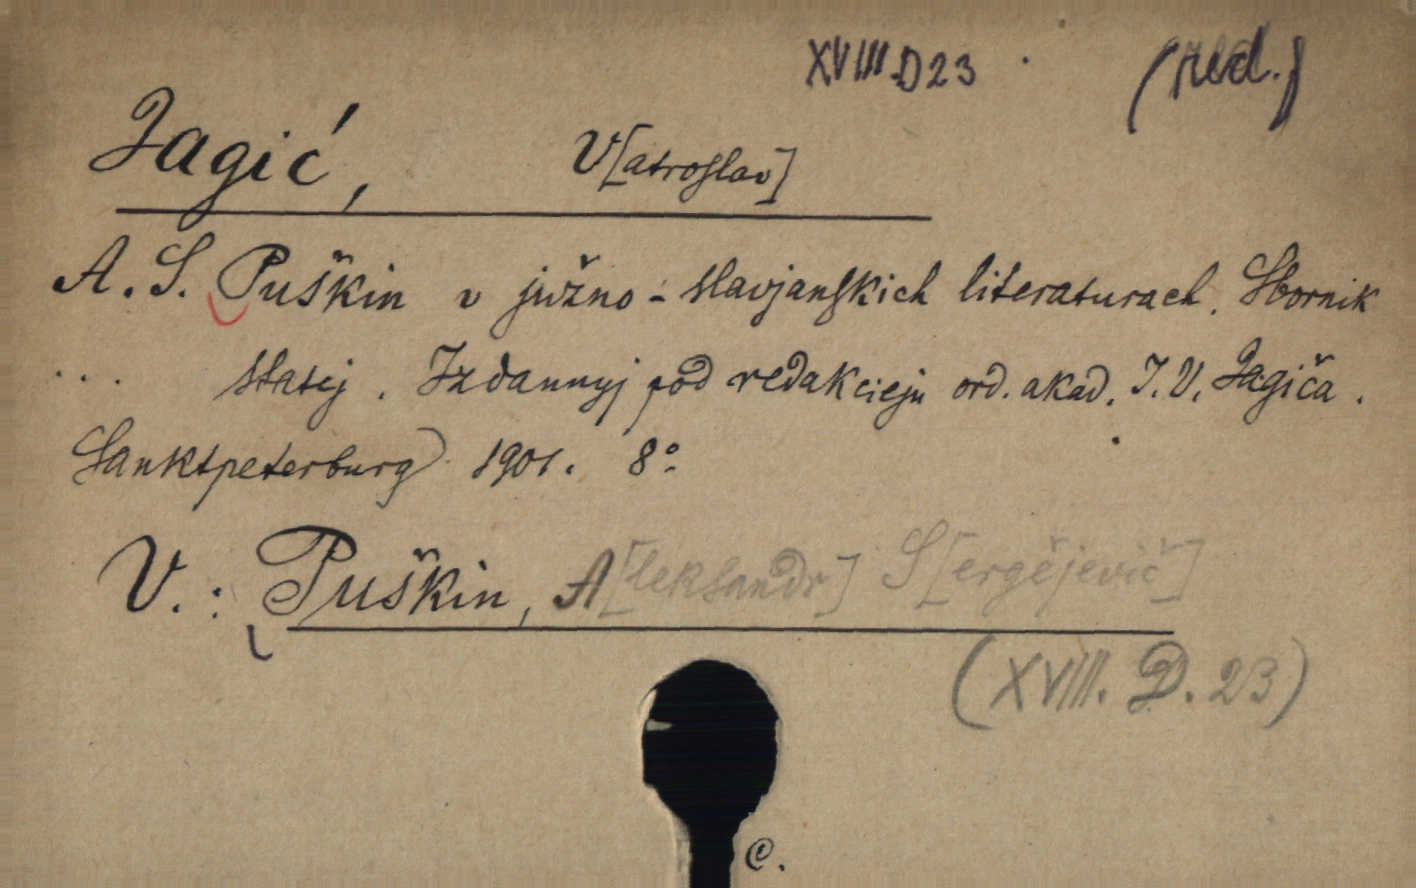 XVIII.D23 (red.)
Jagić, V[atroslav]
A. S. Puškin v južno-slavjanskich literaturach. Sbornik
... statej. Izdannyj pod redakcieju ord. akad. I. V. Jagiča.
Sanktpeterburg 1901. 8°.
V.: Puškin, A[leksandr] S[ergějevič]
(XVIII. D. 23)
C.